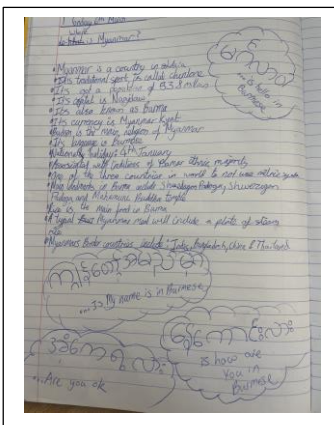 Sunday 6th March
What is Myanmar?
• Myanmar is a country in
• It's traditional sport, is called chinlone
• It's got a population of 53.8 million
• It's capital is Naypidaw
• It's also known as Burma
• It's currency is Myanmar Kyat
is the main religion of Myanmar
• It's language is Burmese
Nationality holiday: 4th January
Associated with traditions of Bamar ethnic majority
• One of the three countries in world to not use metric system
• Main landmarks in Burma include Shwedagon Pagoda, Shwezigon
Pagoda and Mahamuni Buddha temple
Rice is the main food in Burma
• A typical Myanmar meal will include a plate of steam
rice
• Myanmar's Border countries include: India, Bangladesh, China & Thailand
is hello in
Burmese
... Is My name is in Burmese
... Are you ok
is how are
you in
Burmese